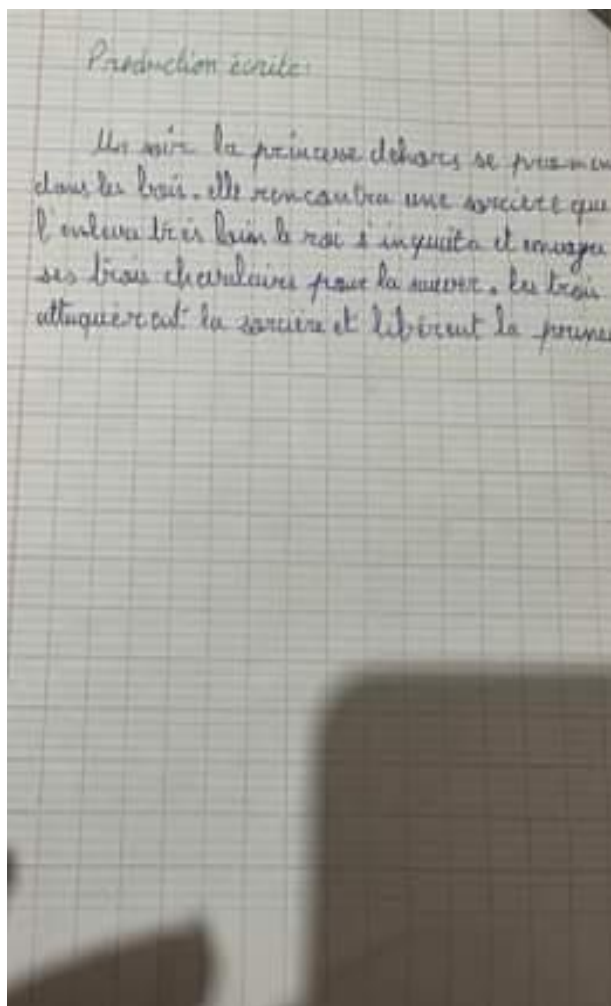 Production écrite:
Un soir la princesse dehors se promen
dans les bois. elle rencontra une sorcière que
l'enleva très loin le roi s'inquita et envoya
ses trois chevalaires pour la sauver. les trois
attaquèrent la sorcière et libèrent la princes